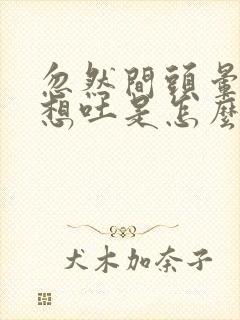 忽然間頭暈
想吐是怎麼
犬木加奈子